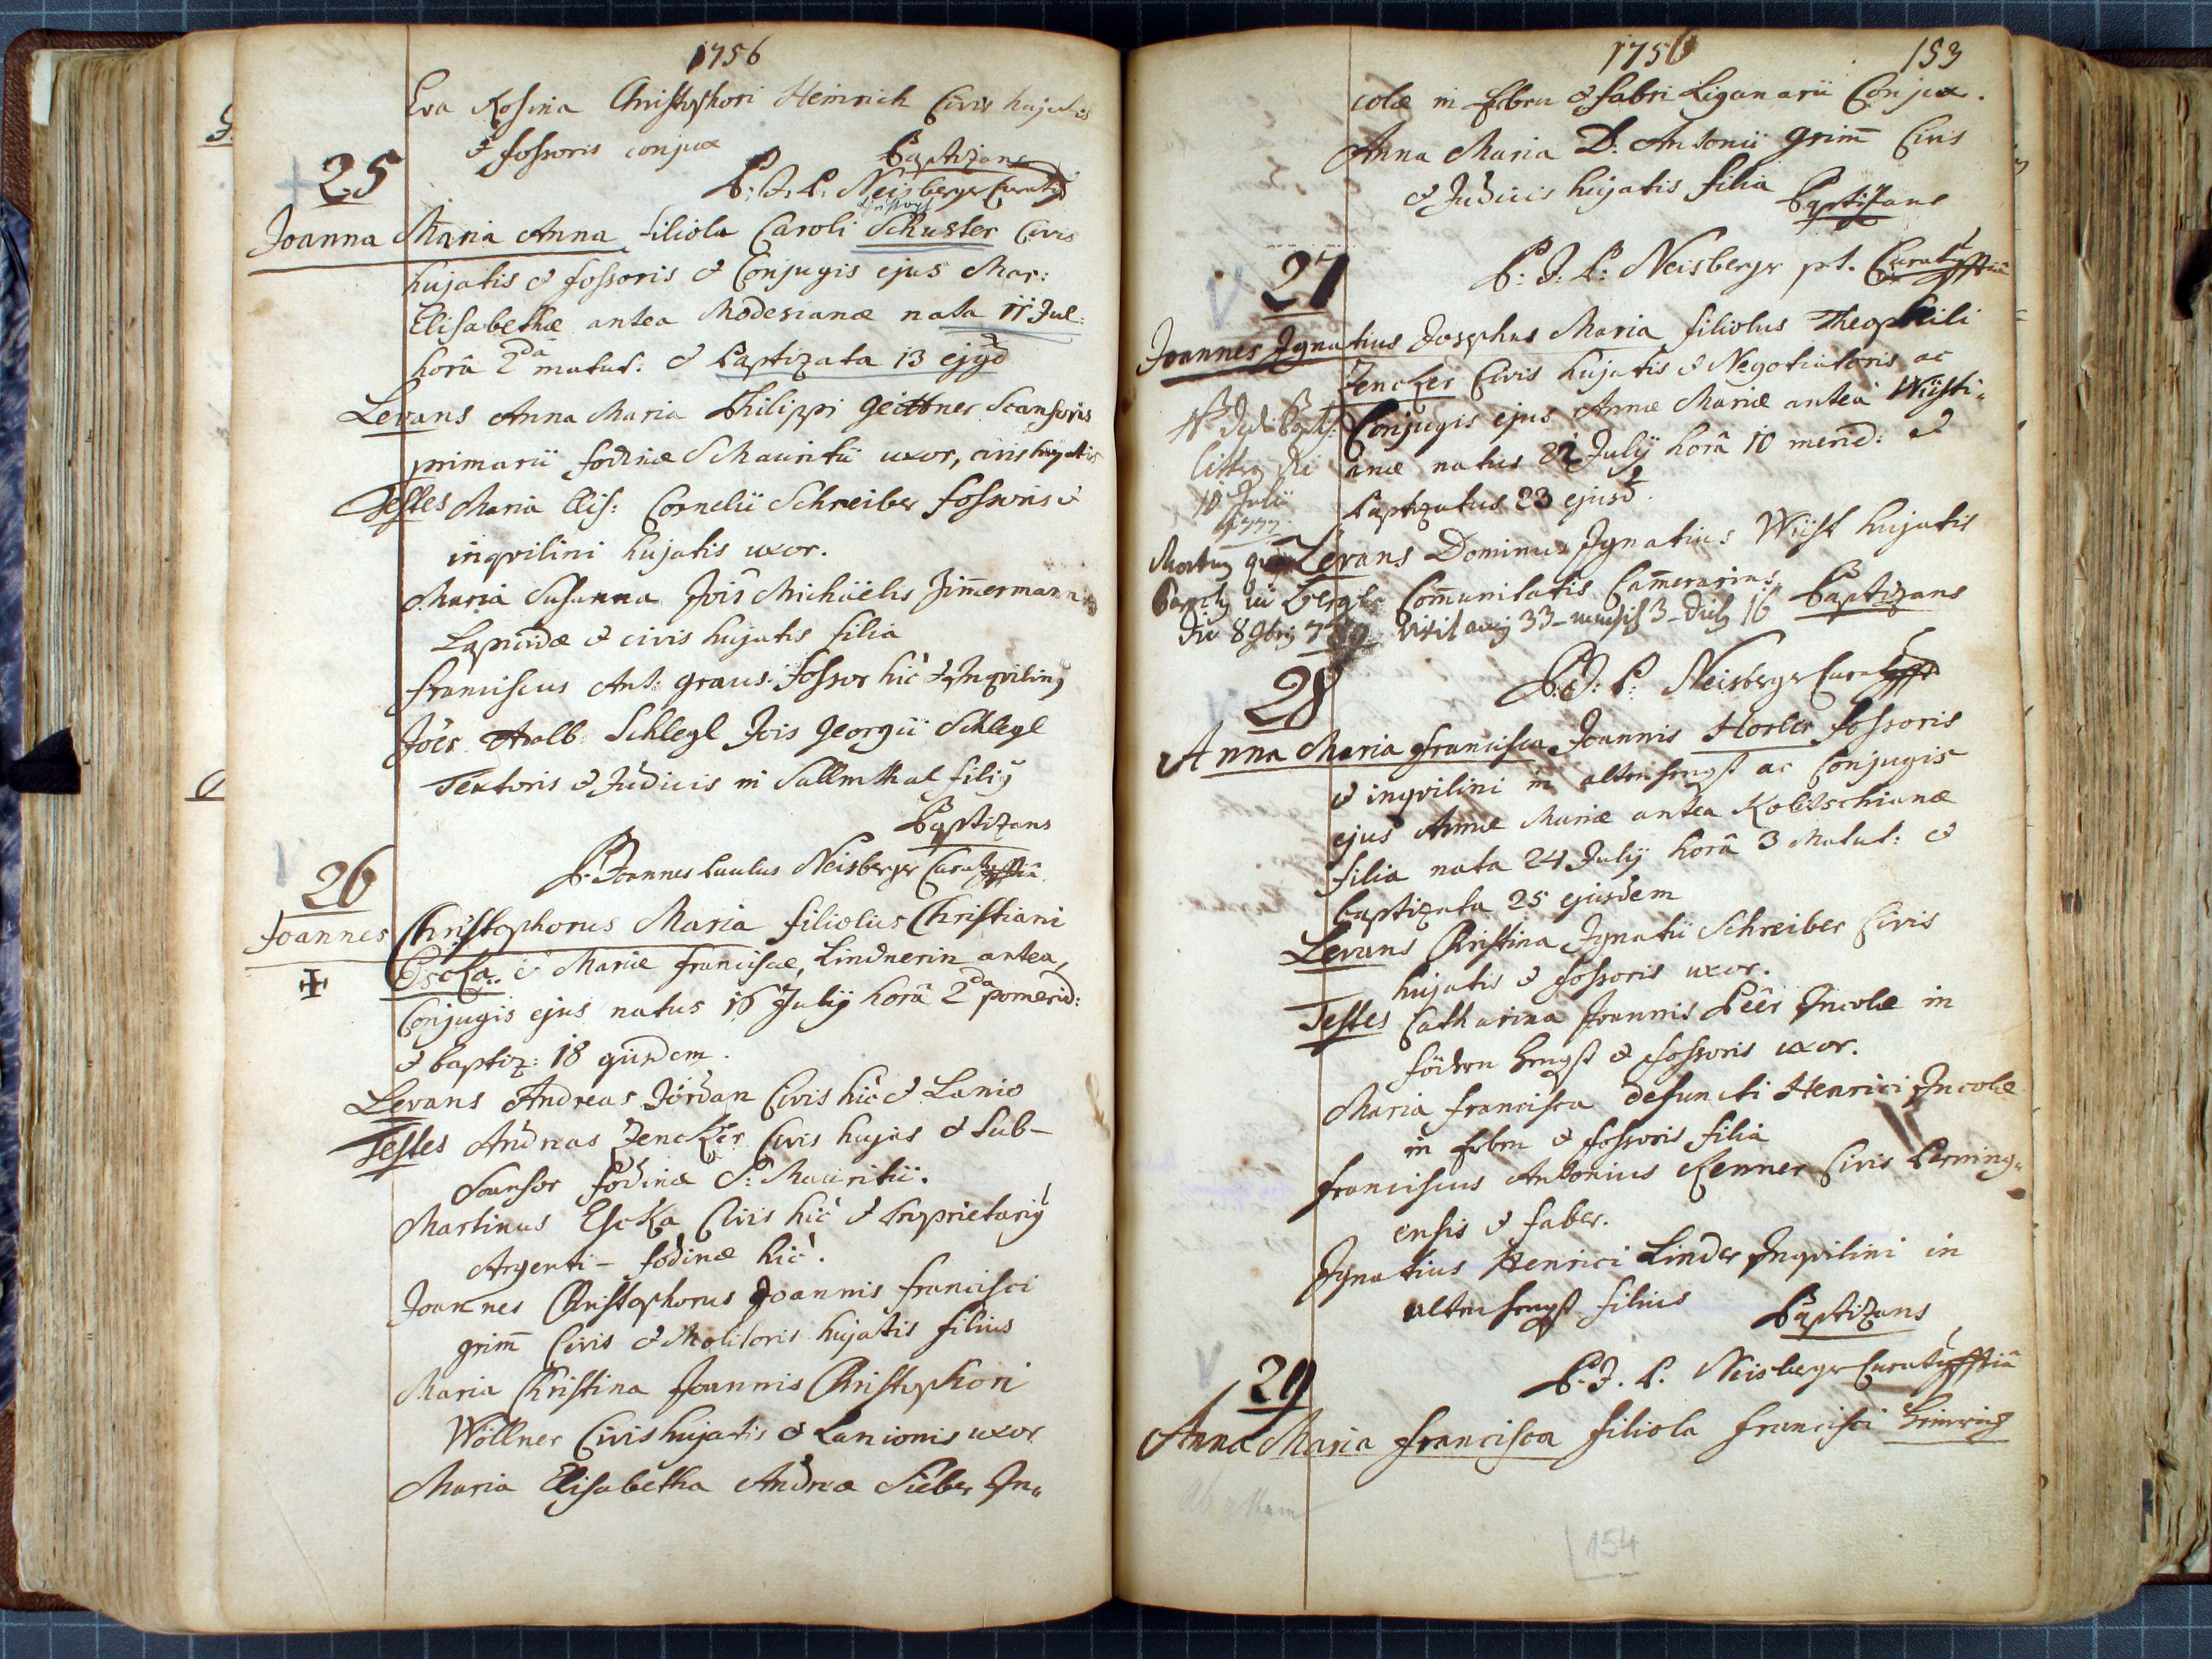 1756
Eva Rosina Christophori Heinrich Civis hujatis
& fossoris conjux
Baptizans
25
P: J: P: Neisberger Curatꝰ
Joanna Maria Anna filiola Caroli Schuster Civis
hujatis & fossoris & Conjugis ejus Mar:
Elisabethæ antea Moderianæ nata 11 Jul:
horâ 2dâ matut: & baptizata 13 ejusd
Levans Anna Maria Philippi Geittner Scansoris
primarii fodinæ S Mauritii uxor, civis hujatis
Testes Maria Elis: Cornelii Schreiber fossoris &
inqvilini hujatis uxor.
Maria Susanna Jois Michäelis Zimmermann
Lapicidæ & civis hujatis filia
Franciscus Ant: Graus: fossor hic & Inqvilinꝰ
Joës Adalb: Schlegl Jois Georgii Schlegl
Textoris & Judicis in Sallmthal filiꝰ
Baptizans
P. Joannes Paulus Neisberger Curatꝰ
26
Joannes Christophorus Maria filiolus Christiani
Escka & Mariæ Franciscæ, Lindnerin antea,
Conjugis ejus natus 16 Julij horâ 2da pomerid:
& baptiz: 18 ejusdem.
Levans Andreas Jördan Civis hic & Lanio
Testes Andreas Zencker Civis hujas & Sub-
Scansor fodinæ S: Mauritii.
Martinus Escka Civis hic & Proprietariꝰ
Argenti- fodinæ hic.
Joannes Christophorus Joannis Francisci
Grim̄ Civis & Molitoris hujatis filius
Maria Christina Joannis Christophori
Wöllner Civis hujatis & Lanionis uxor
Maria Elisabetha Andreæ Sieber In„
1756
153
colæ in & fabri Lignarii Conjux.
Anna Maria D: Antonii Grim̄ Civis
& Judicis hujatis filia
Baptizans
P: J: P: Neisberger pt. Curatꝰ
27
Joannes Ignatius Josephus Maria filiolus Theophili
Zencker Civis hujatis & Negotiatoris ac
Conjugis ejus Annæ Mariæ antea Wüsti„
anæ natus 22 Julij horâ 10 merid: &
baptizatus 23 ejusd.
10 Julii
1777.
Levans Dominus Ignatius Wüst hujatis
Com̄unitatis Cam̄erarius
Baptizans
P: J: P: Neisberger Curatꝰ
28
Anna Maria Francisca Joannis Horler fossoris
& inqvilini in altenhengst ac Conjugis
ejus Annæ Mariæ antea Kolitschianæ
filia nata 24 Julij horâ 3 Matut: &
baptizata 25 ejusdem
Levans Christina Ignatii Schreiber Civis
hujatis & fossoris uxor.
Testes Catharina Joannis Peër Incolæ in
födern Hengst & fossoris uxor.
Maria Francisca defuncti Henrici Incolæ
in & fossoris filia
Franciscus Antonius Renner Civis Perning„
ensis & faber.
Ignatius Henrici Linder Inqvilini in
altenhengst filius
Baptizans
P. J. P. Neisberger Curatꝰ
29
Anna Maria Francisca filiola Francisci Heinrich
154